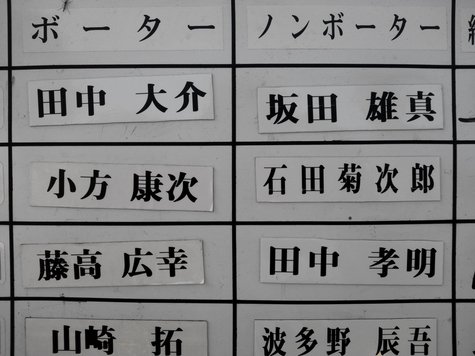 ボーター ノンボーター
田中 大介 坂田 雄真
小方 康次 石田菊次郎
藤高 広幸 田中 孝明
山崎 拓 波多野 辰吾